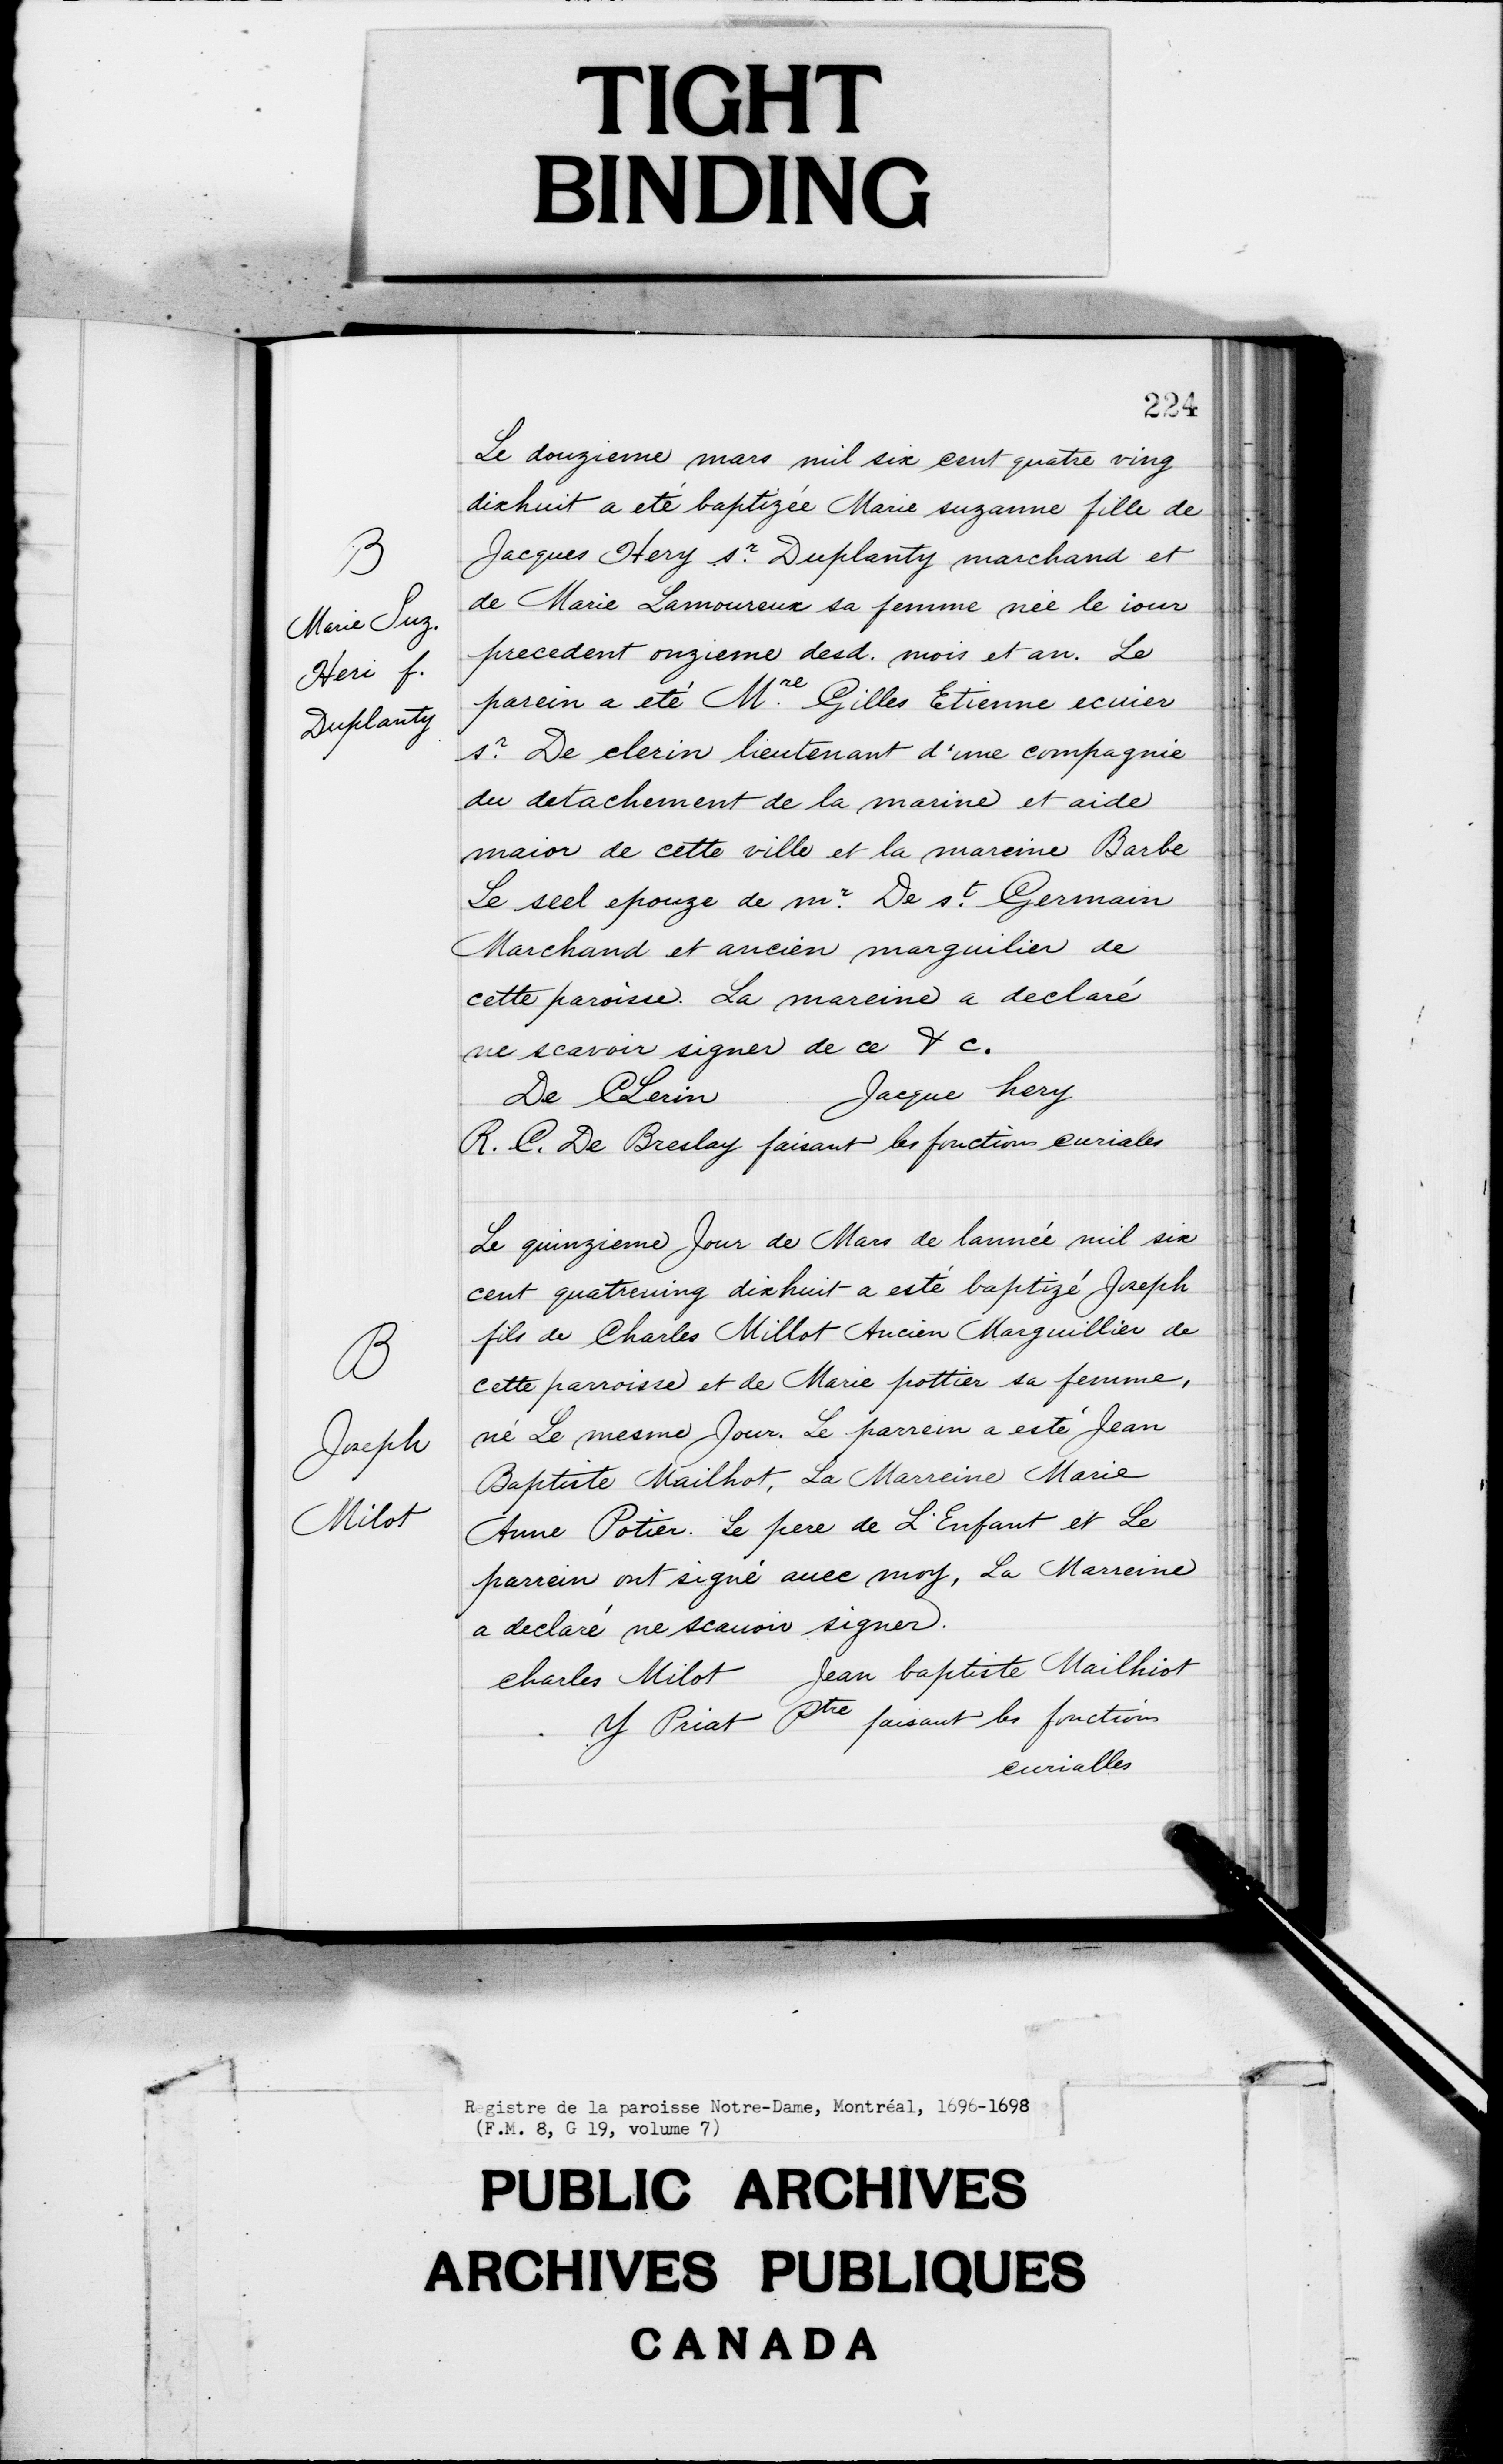 TIGHT
BINDING
224
Le douzieme mars mil six cent quatre ving
dixhuit a eté baptizée Marie suzanne fille de
B
Jacques Hery sr. Duplanty marchand et
Marie Suz.
de Marie Lamoureux sa femme née le iour
Heri f.
precedent onzieme desd. mois et an. Le
Duplanty
parein a eté Mre. Gilles Etienne ecuier
sr. De clerin lieutenant d'une compagnie
du detachement de la marine et aide
maior de cette ville et la mareine Barbe
Le seel epouze de mr. De st. Germain
Marchand et ancien marguilier de
cette paroisse. La mareine a declaré
ne scavoir signer de ce & c.
De CLerin Jacque hery
R. C. De Breslay faisant les fonctions curiales
Le quinzieme Jour de Mars de lannée mil six
cent quatreuing dixhuit a esté baptizé Joseph
B
fils de Charles Millot Ancien Marguillier de
cette parroisse et de Marie pottier sa femme,
Joseph
né Le mesme Jour. Le parrein a esté Jean
Baptiste Mailhot, La Marreine Marie
Milot
Anne Potier. Le pere de L'Enfant et Le
parrein ont signé auec moy, La Marreine
a declaré ne scauoir signer.
charles Milot Jean baptiste Mailhiot
Y Priat Ptre faisant les fonctions
curialles
Registre de la paroisse Notre-Dame, Montréal, 1696-1698
(F.M. 8, G 19, volume 7)
PUBLIC ARCHIVES
ARCHIVES PUBLIQUES
CANADA